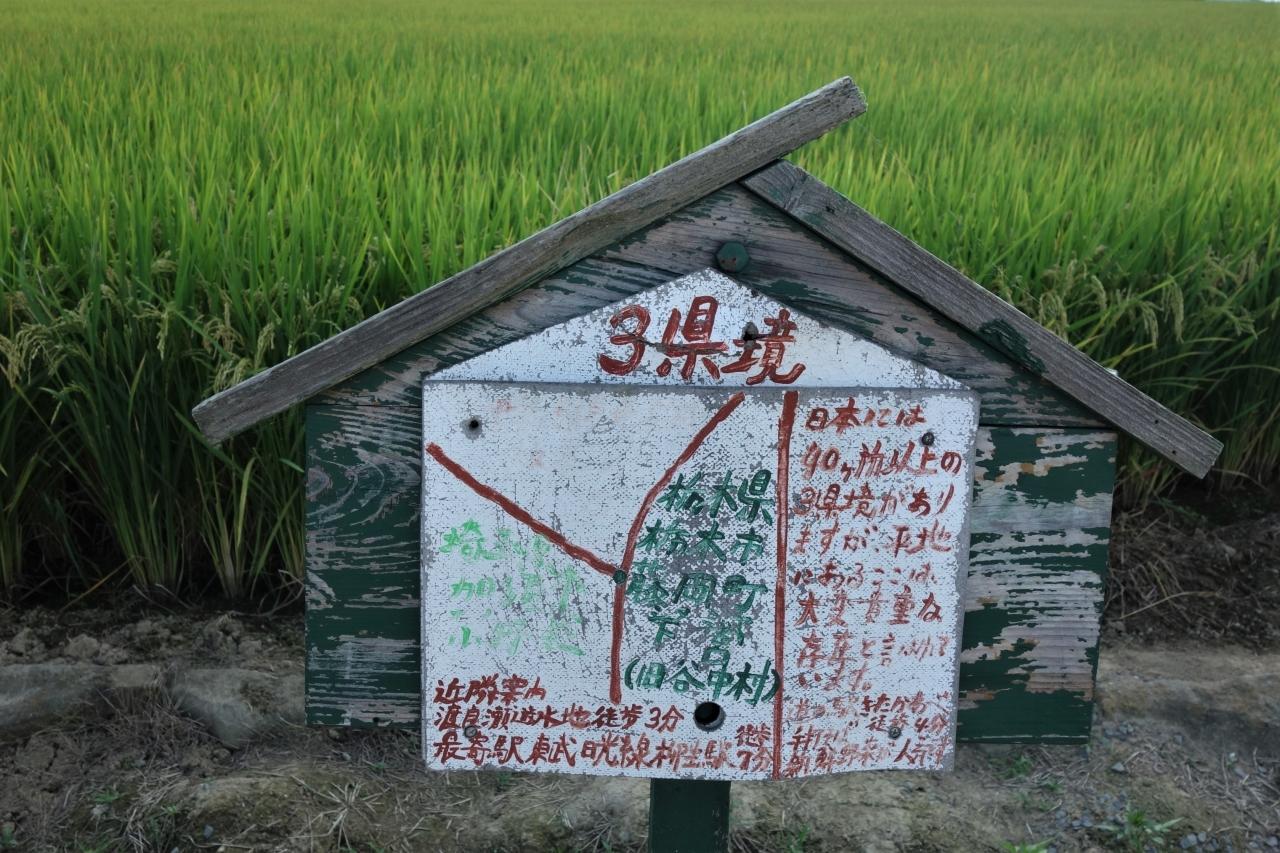 3県境
栃木県
栃木市
藤岡町
下宮
(旧谷中村)
埼玉県
加須市
小野袋
日本には
40ヶ所以上の
3県境があり
ますが、平地
にあるここは、
大変貴重な
存在と言われて
います。
道の駅きたかわべ
徒歩4分
新鮮野菜が人気
近隣案内
渡良瀬遊水地徒歩3分
最寄駅東武日光線柳生駅徒歩7分